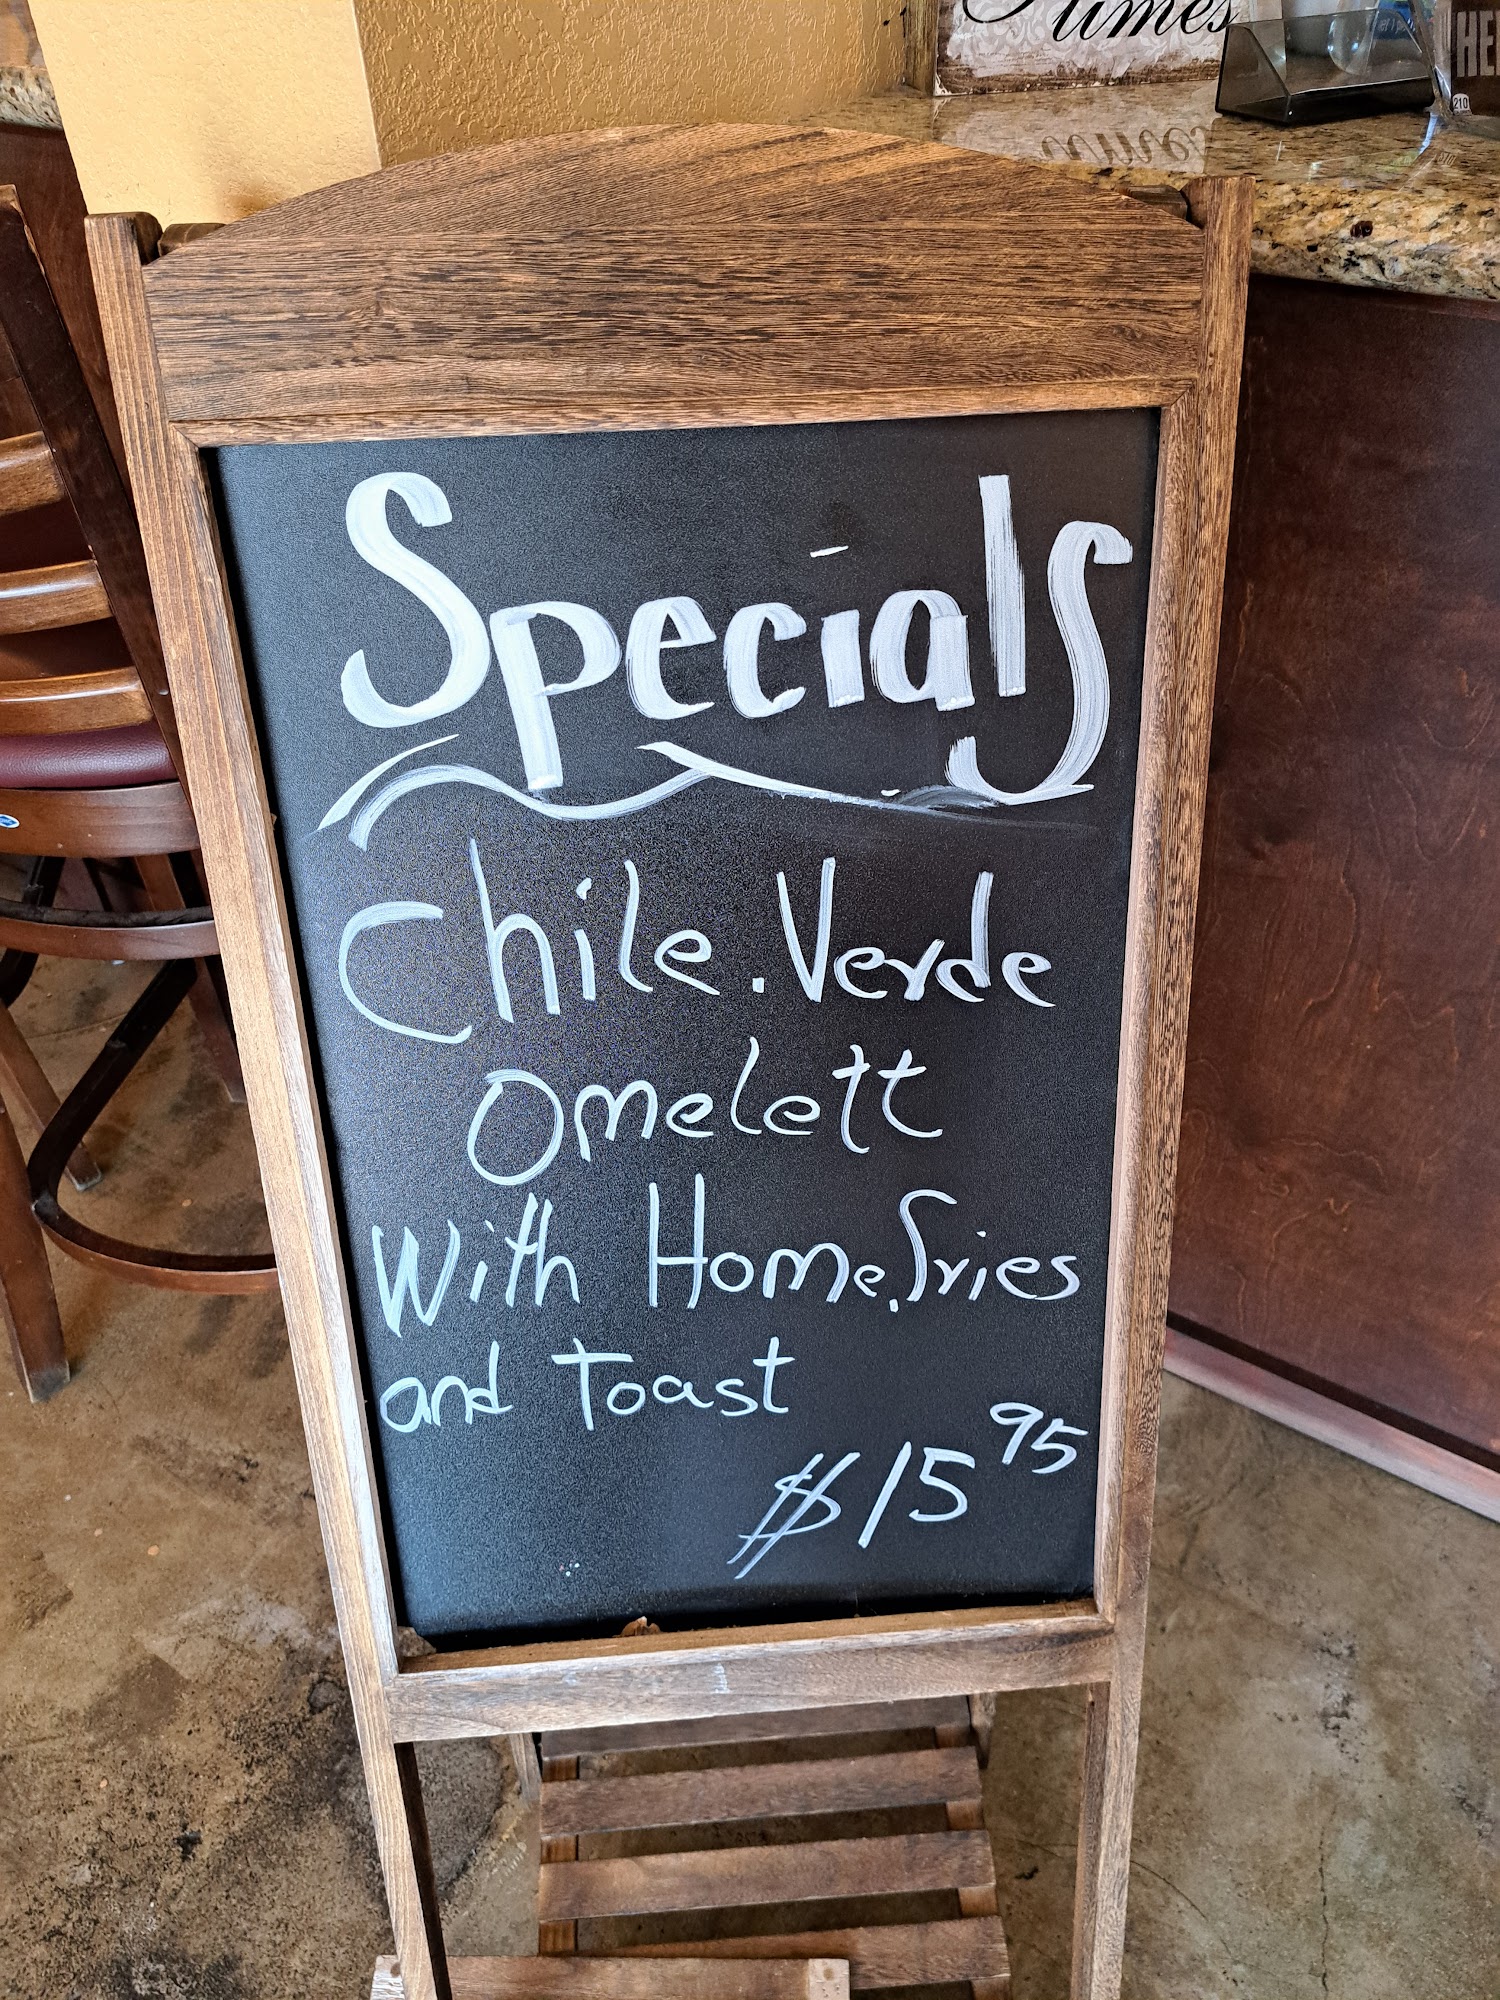 Times
HE
210
Specials
Chile.Verde
Omelett
With Home.fries
and Toast
$15 95